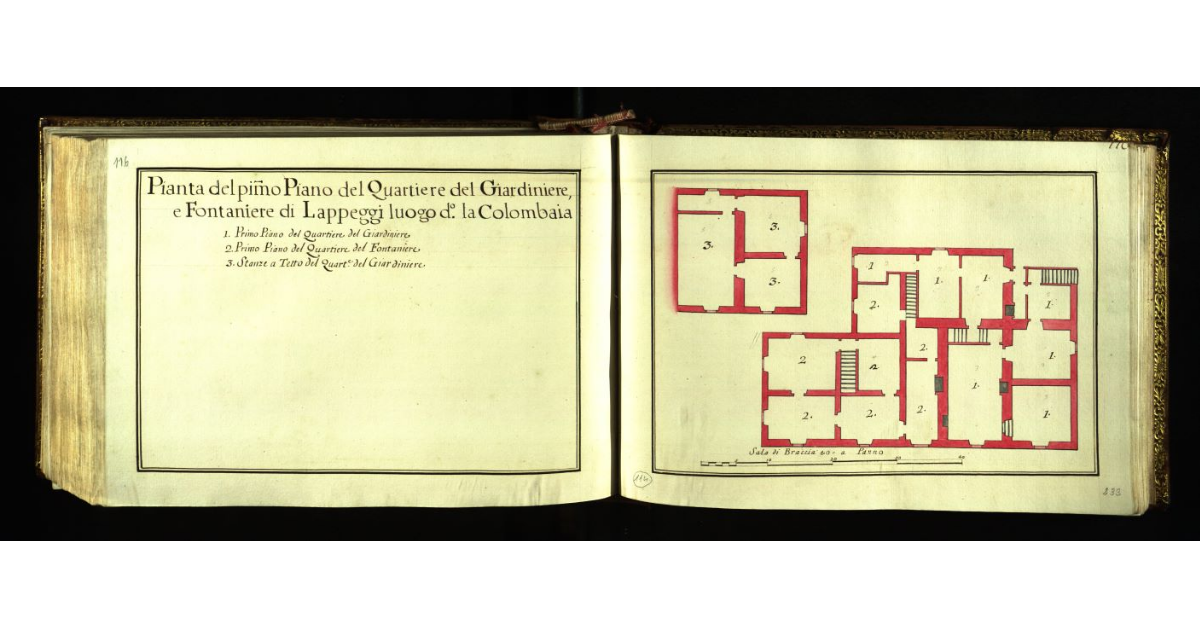 116
Pianta del pim̃o Piano del Quartiere del Giardiniere,
e Fontaniere di Lappeggi luogo d.º la Colombaia
1. Primo Piano del Quartiere del Giardiniere.
2. Primo Piano del Quartiere del Fontaniere.
3. Stanze a Tetto del Quart.º del Giardiniere.
3.
3.
3.
1
1.
1.
1.
2.
2.
2
2
1.
1.
2.
2.
2.
1.
Scala di Braccia 40. a Panno
10
20
30
40
133